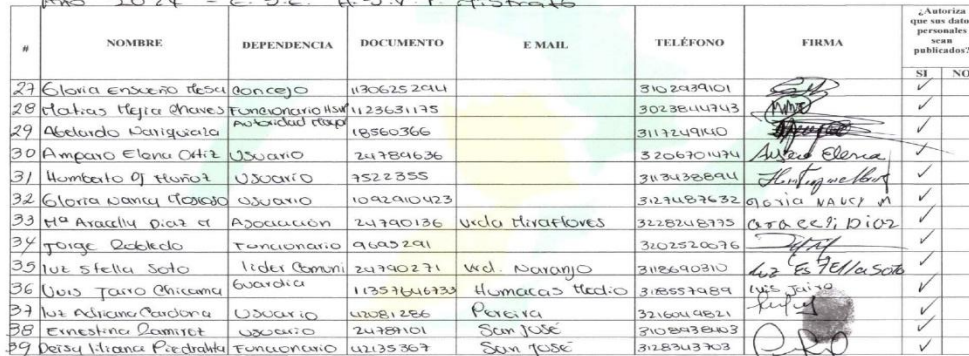 AÑO 2024 - E.S.E. H.S.V.P. Mistrato
# NOMBRE DEPENDENCIA DOCUMENTO E MAIL TELÉFONO FIRMA ¿Autoriza que sus datos personales sean publicados?
SI NO
27 Gloria Ensueño Mesa concejo 3102939101 ✓
28 Matias Mejia Chaves Funcionario 1123631175 3023844743 ✓
29 Abelardo Autoridad 18560366 3117249140 ✓
30 Amparo Elena Ortiz Usuario 24789636 3206701474 Amparo Elena ✓
31 Humberto Muñoz Usuario 7522355 3113438894 ✓
32 Gloria Nancy Usuario 1092910423 3127487632 gloria NANCY M ✓
33 Mª Aracelly Diaz Asociación 24790136 Vrda Miraflores 3228248775 araceli Diaz ✓
34 Jorge Robledo Funcionario 9695291 3202520076 ✓
35 luz Stella Soto lider Comuni 24790271 Vrd. Naranjo 3118690310 Luz Estella Soto ✓
36 Luis Jairo Chicama Guardia Humacas Medio 318557989 Luis Jairo ✓
37 luz Adriana Cardona Usuario 42081286 Pereira 3216049821 ✓
38 Ernestina Ramirez usuario 24787101 San José 3108938403 ✓
39 Deisy Liliana Piedrahita Funcionario 42135367 San José 3128343703 ✓